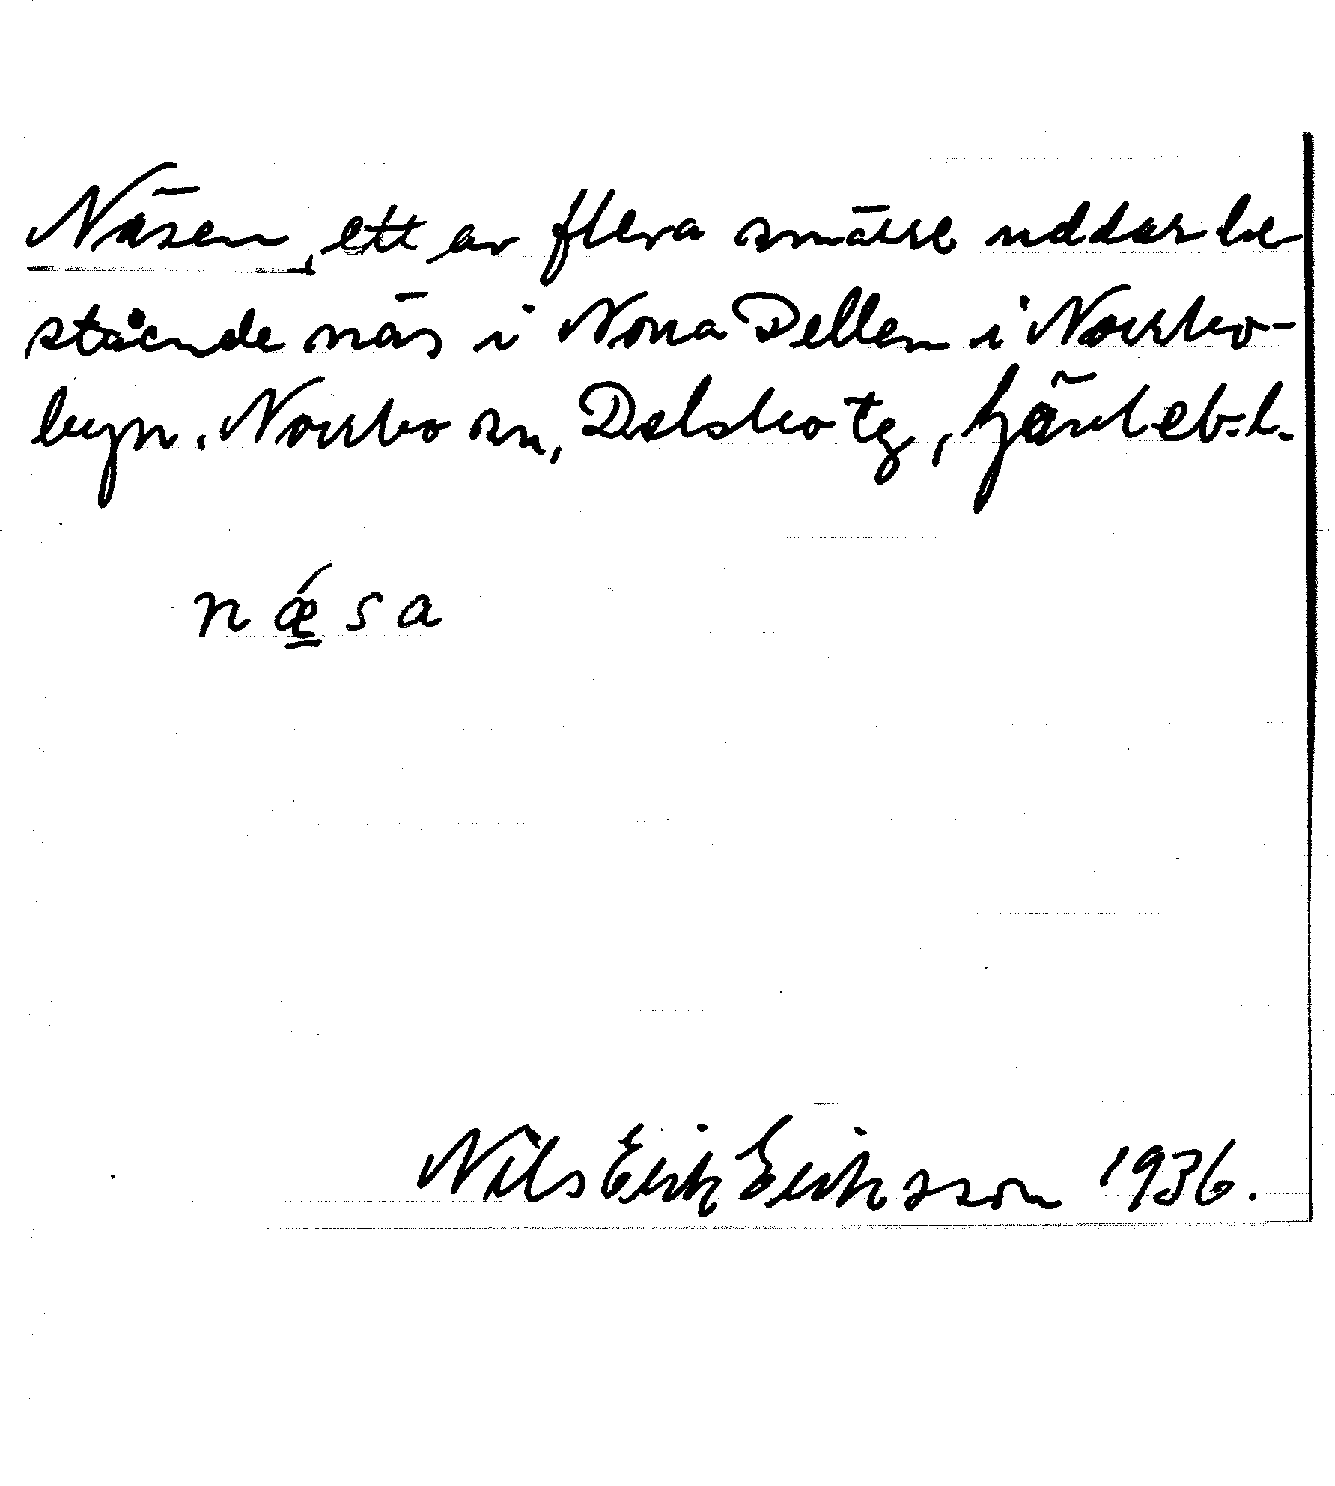 Näsen, ett av flera smärre uddar be
stående näs i Norra Dellen i Norrbo-
byn. Norrbo sn, Delsbo tg, Gävleb. l.
n ǽ s a
Nils Erik Eriksson 1936.